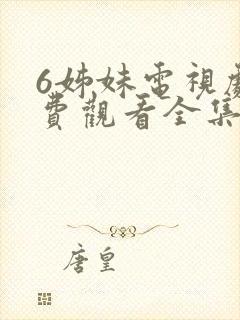 6姊妹電視劇
費觀看全集
唐皇